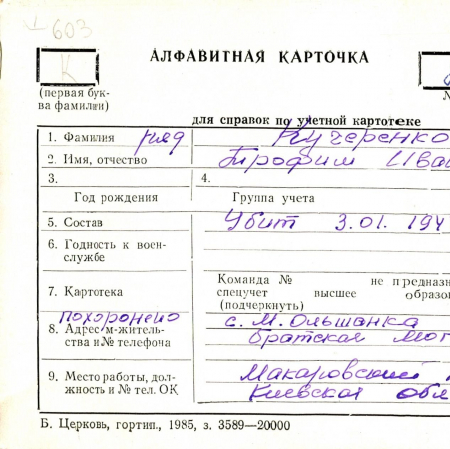 603
К
АЛФАВИТНАЯ КАРТОЧКА
(первая бук-
ва фамилии)
для справок по учетной картотеке
1. Фамилия ряд Кучеренко
2. Имя, отчество Трофим Ива
3. 4.
Год рождения Группа учета
5. Состав Убит 3.01.194
6. Годность к воен-
службе
7. Картотека Команда № не предназн
спецучет высшее образо
(подчеркнуть)
похоронено с. М. Ольшанка
8. Адрес м-житель-
ства и № телефона Братская Мог
9. Место работы, дол-
жность и № тел. ОК Макаровский
Киевская обл
Б. Церковь, гортип., 1985, з. 3589—20000